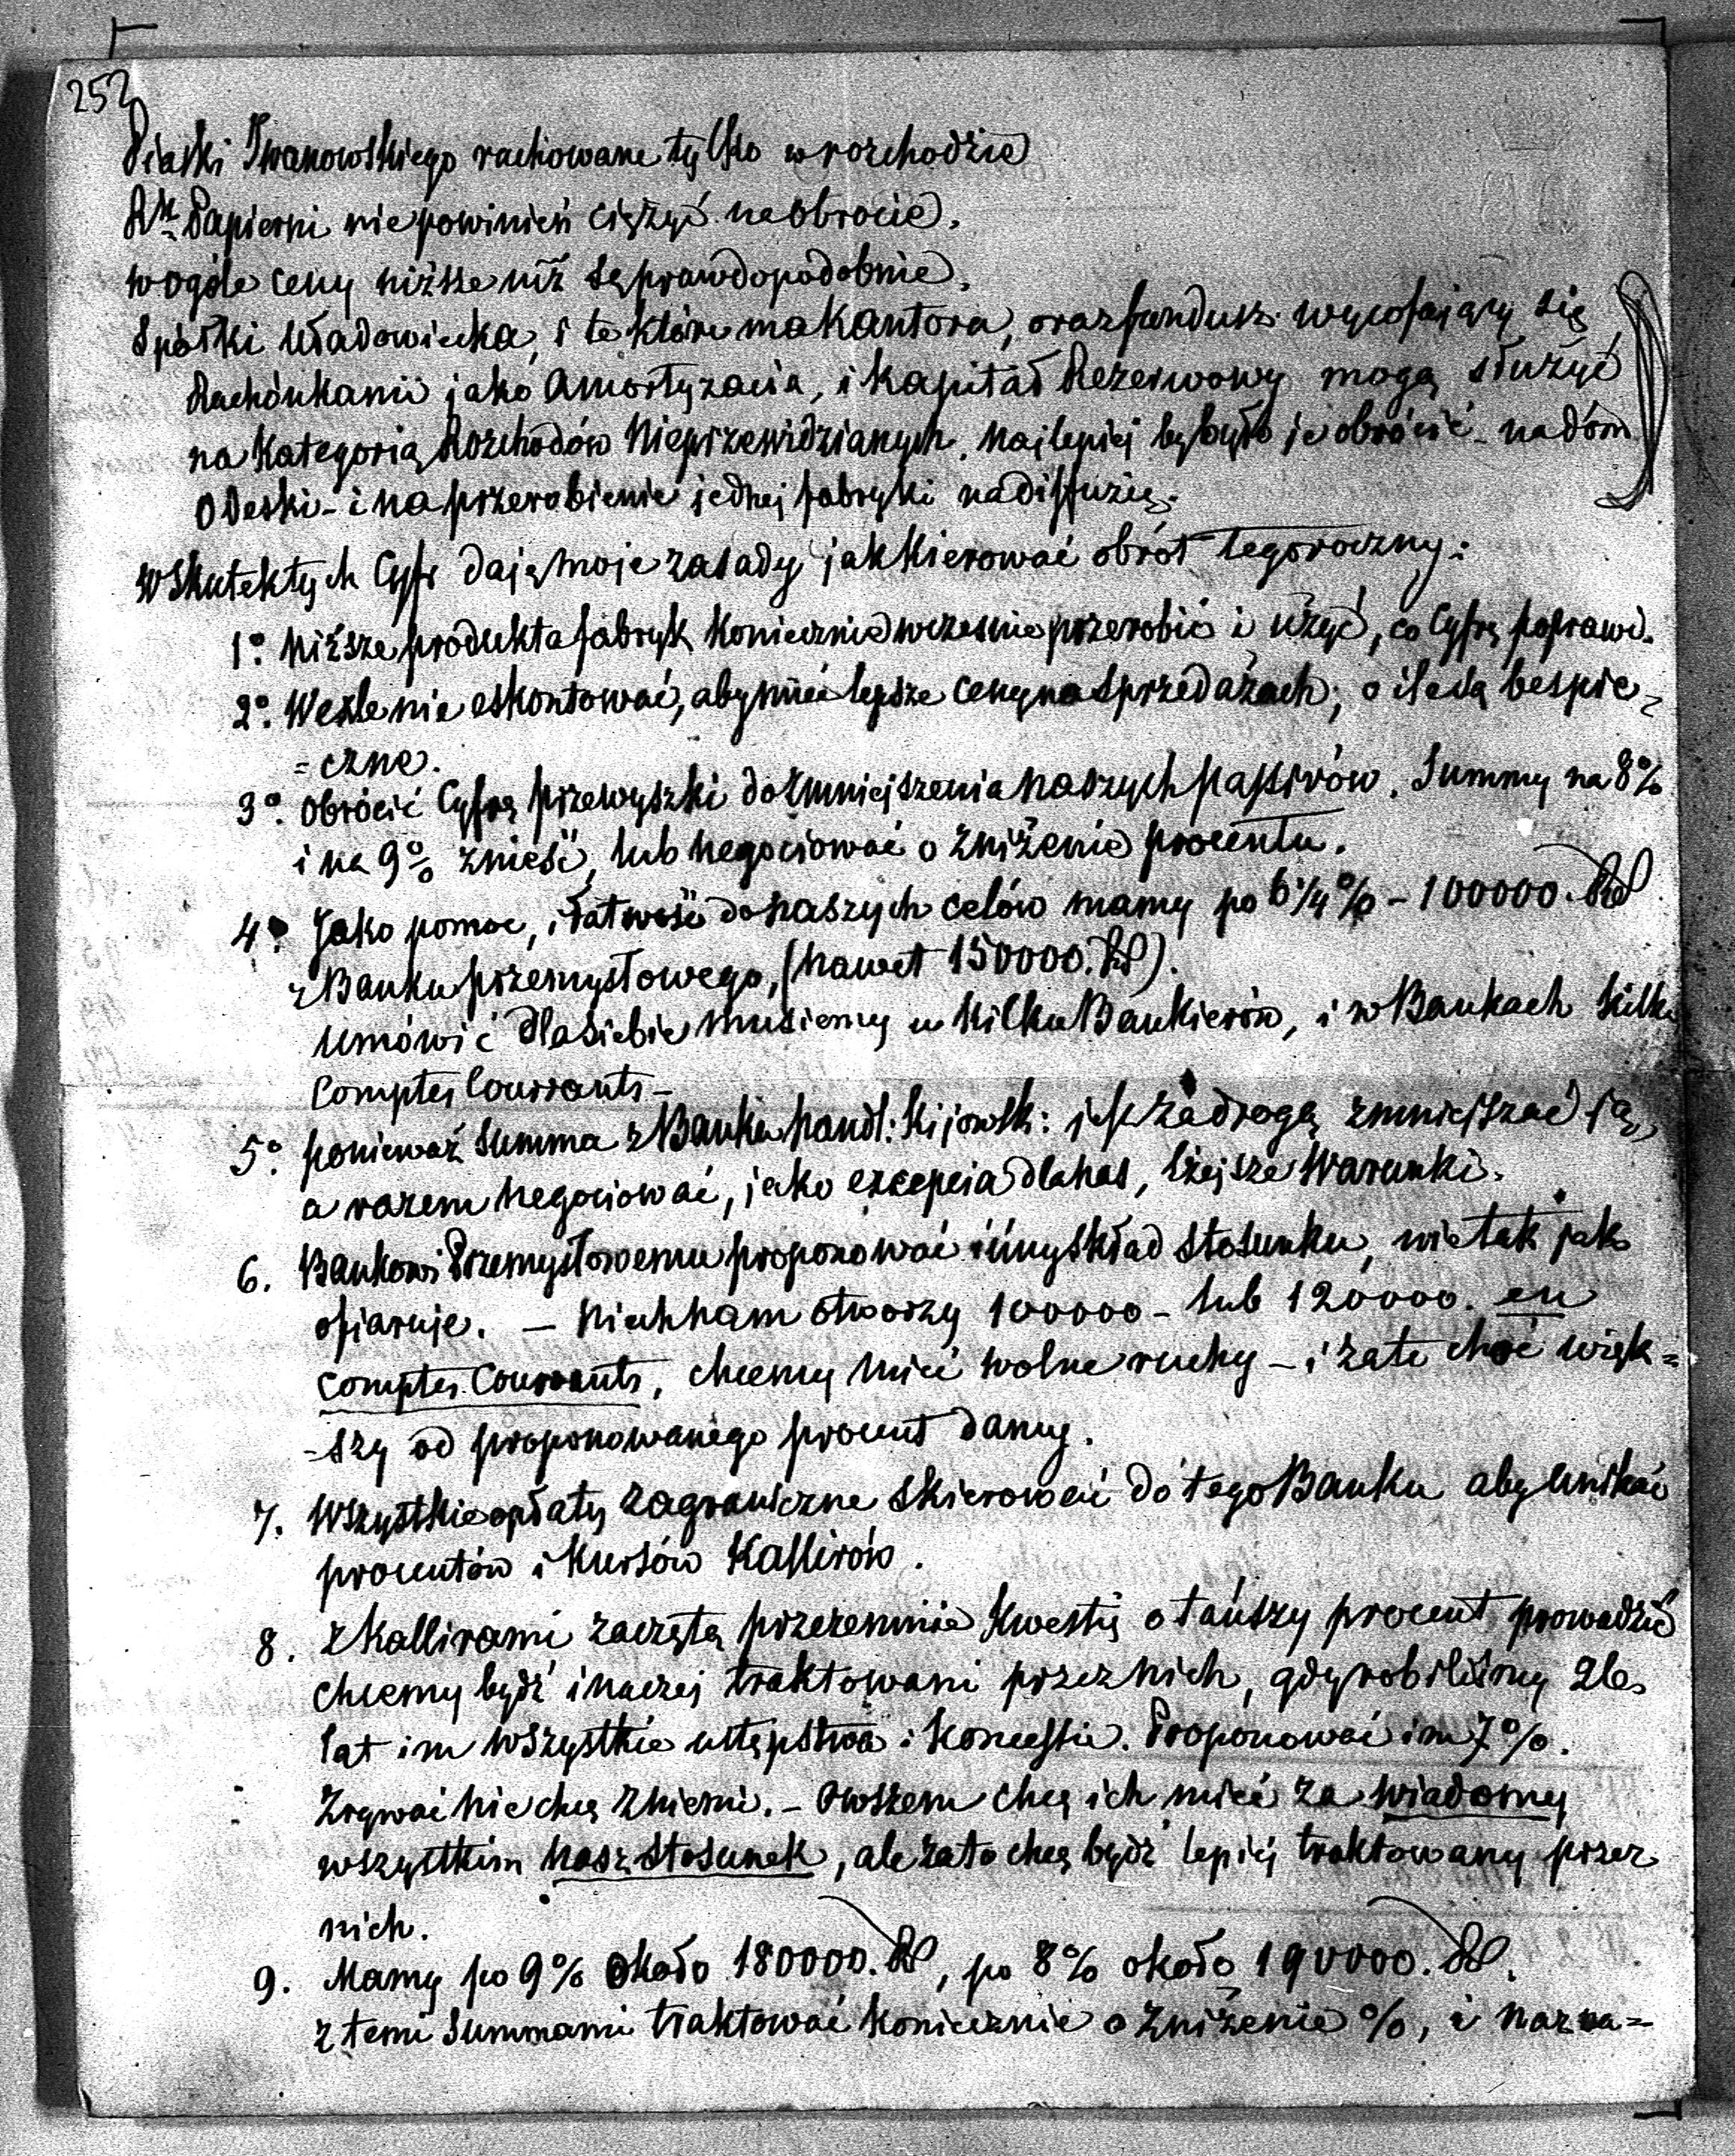 252
Piaski Iwanowskiego rachowane tylko w rozchodzie
R<sup>k</sup> Papierni nie powinień ciężyć na obrocie.
w ogóle ceny niższe niż są prawdopodobnie.
Spółki Uładowiecka, i te które ma Kantora, oraz fundusz wycofający się
Rachunkami jako Amortyzacia, i Kapitał Rezerwowy mogą służyć
na Kategorią Rozchodów Nieprzewidzianych. Najlepiej by było je obrócić na dóm
Odeski - i na przerobienie jednej fabryki na diffuzią.
W skutek tych Cyfr dają moje zasady jak Kierować obrót tegoroczny:
1° Niższe produkta fabryk Koniecznie wcześnie przerobić i użyć, co Cyfrą poprawi.
2° Wexle nie eskontować, aby mieć lepsze ceny na sprzedażach; o ile są bespie-
=czne.
3° Obrócić Cyfrą przewyszki do zmniejszenia naszych passivów. Summy na 8%
i na 9% znieść, lub negociować o zniżenie procentu.
4° Jako pomoc, i łatwość do naszych celów mamy po 6 1/4 % - 100000. Rs
z Banku przemysłowego, (nawet 150000. Rs).
Umówić dla siebie musiemy u Kilku Bankierów, i w Bankach Kilka
Comptes Courrants -
5° ponieważ Summa z Banku handl: Kijowsk: jest za drogą zmniejszać ją,
a razem negociować, jako excepcia dla nas, lżejsze Warunki.
6. Bankowi Przemysłowemu proponować inny skład stosunku, nie tak jak
ofiaruje. - Niech nam otworzy 100000 - lub 120000. en
comptes Courrants, chcemy mieć wolne ruchy - i za te choć więk=
-szy od proponowanego procent damy.
7. Wszystkie opłaty zagraniczne skierować do tego Banku aby unikać
procentów i Kursów Kallirów.
8. z Kallirami zaczętą przezemnie Kwestię o tańszy procent prowadzić
chcemy bydź inaczej traktowani przez nich, gdy robiliśmy
lat im wszystkie ustępstwa i Koncessie. Proponować im 7%.
Zrywać nie chcę z niemi. - Owszem chcę ich mieć za wiadomy
wszystkim nasz stosunek, ale za to chcę bydź lepiej traktowany przez
nich.
9. Mamy po 9% około 180000. Rs, po 8% około 190000. Rs.
z temi Summami traktować Koniecznie o Zniżenie %, i nazna=